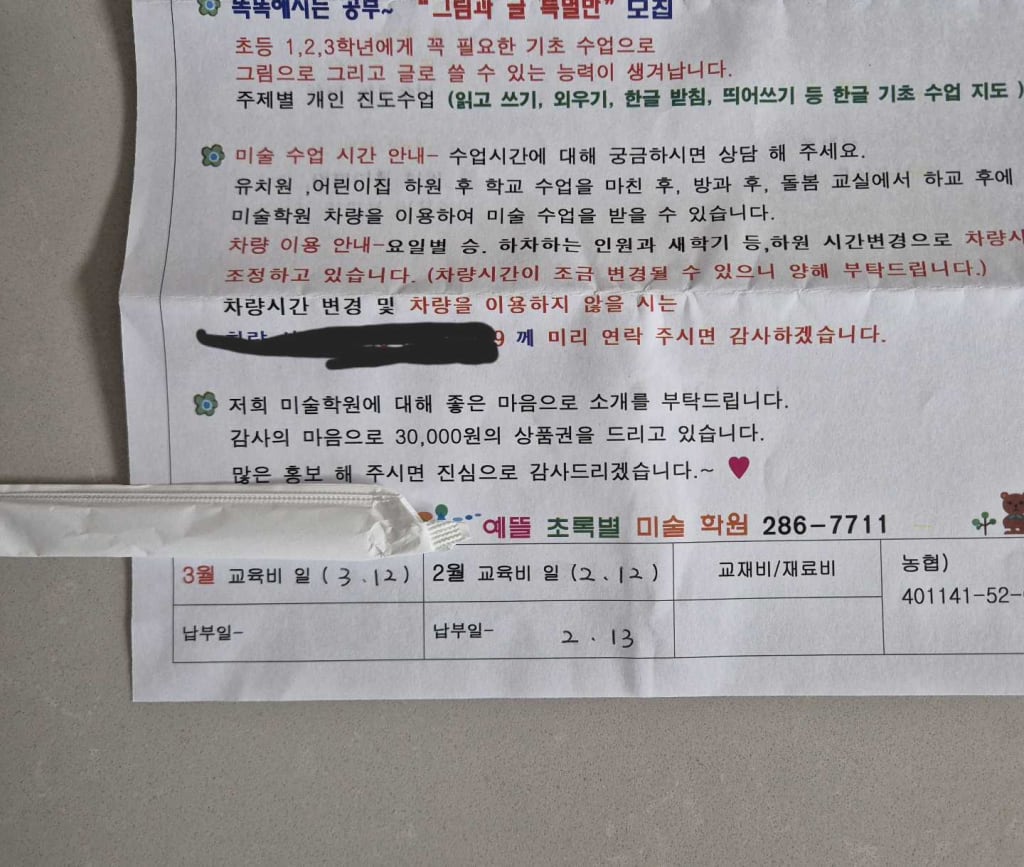 똑똑해지는 공부~ "그림과 글 특별반" 모집
초등 1,2,3학년에게 꼭 필요한 기초 수업으로
그림으로 그리고 글로 쓸 수 있는 능력이 생겨납니다.
주제별 개인 진도수업 (읽고 쓰기, 외우기, 한글 받침, 띄어쓰기 등 한글 기초 수업 지도 )
미술 수업 시간 안내- 수업시간에 대해 궁금하시면 상담 해 주세요.
유치원 ,어린이집 하원 후 학교 수업을 마친 후, 방과 후, 돌봄 교실에서 하교 후에
미술학원 차량을 이용하여 미술 수업을 받을 수 있습니다.
차량 이용 안내-요일별 승. 하차하는 인원과 새학기 등,하원 시간변경으로 차량시
조정하고 있습니다. (차량시간이 조금 변경될 수 있으니 양해 부탁드립니다.)
차량시간 변경 및 차량을 이용하지 않을 시는
9 께 미리 연락 주시면 감사하겠습니다.
저희 미술학원에 대해 좋은 마음으로 소개를 부탁드립니다.
감사의 마음으로 30,000원의 상품권을 드리고 있습니다.
많은 홍보 해 주시면 진심으로 감사드리겠습니다.~ ♥
예뜰 초록별 미술 학원 286-7711
3월 교육비 일 ( 3.12 ) 2월 교육비 일 (2.12 ) 교재비/재료비 농협)
401141-52-
납부일- 납부일- 2.13